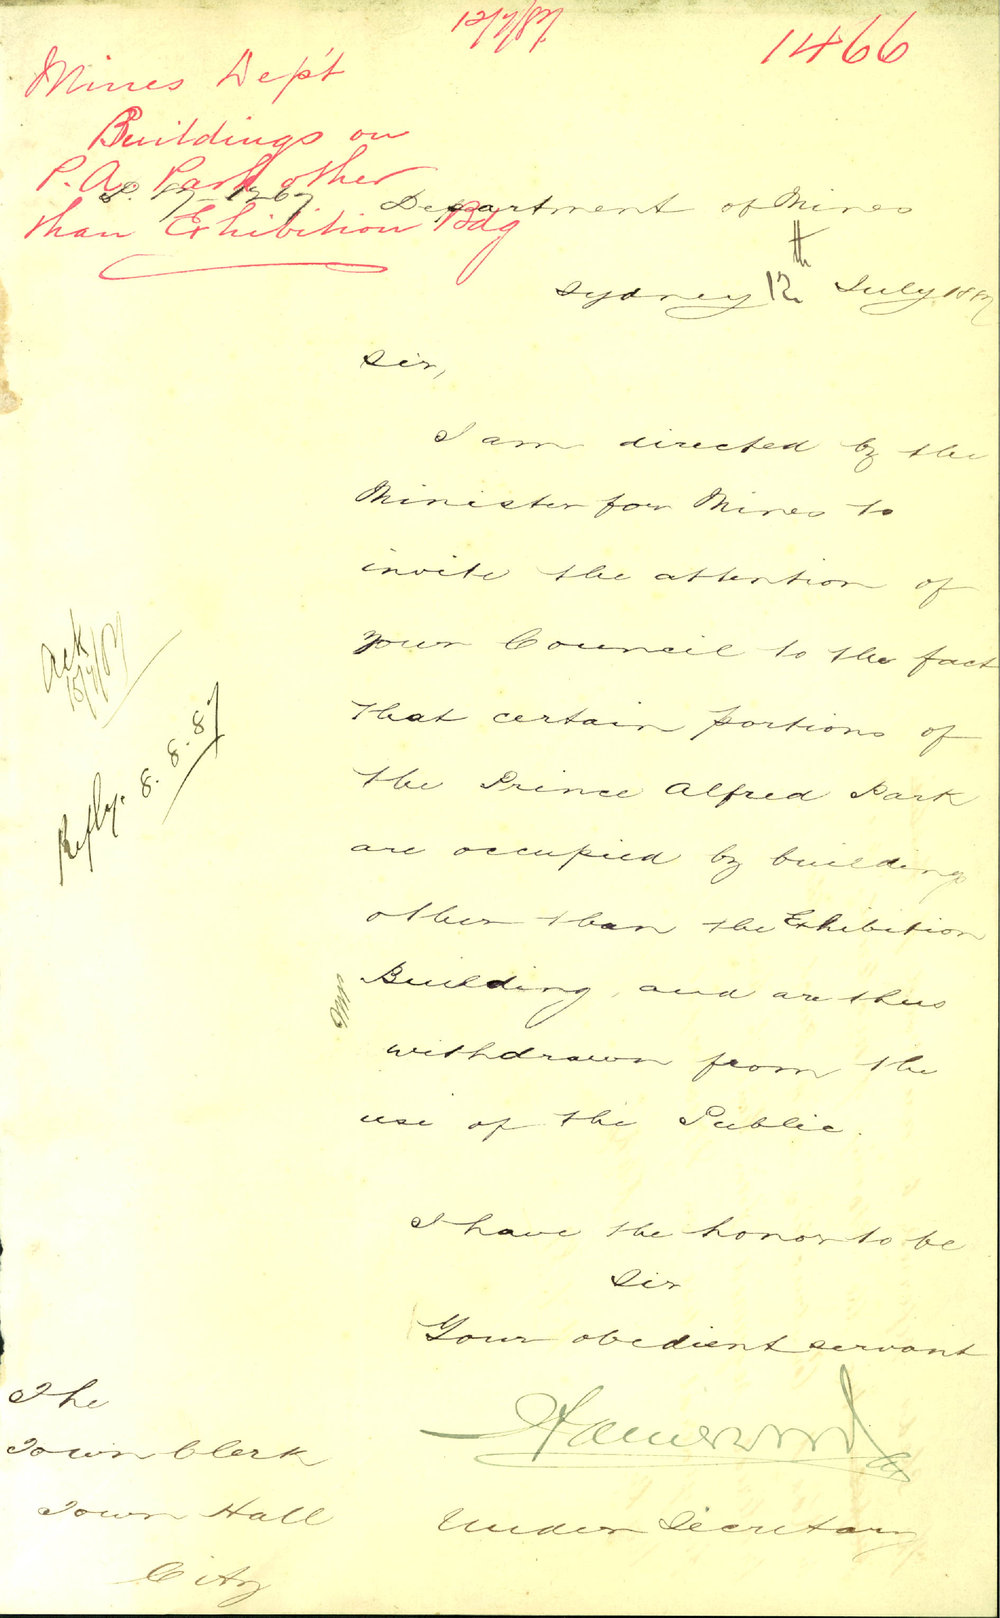 12/7/87
1466
Mines Dep't
Buildings on
P. A. Park other
than Exhibition Bdg
Department of Mines
Sydney 12th July 1887
Sir,
I am directed by the
Minister for Mines to
invite the attention of
your Council to the fact
that certain portions of
the Prince Alfred Park
are occupied by buildings
other than the Exhibition
Building, and are thus
withdrawn from the
use of the Public.
I have the honor to be
Sir
Your obedient servant
Under Secretary
The
Town Clerk
Town Hall
City
Ack
15/7/87
Reply. 8. 8. 87